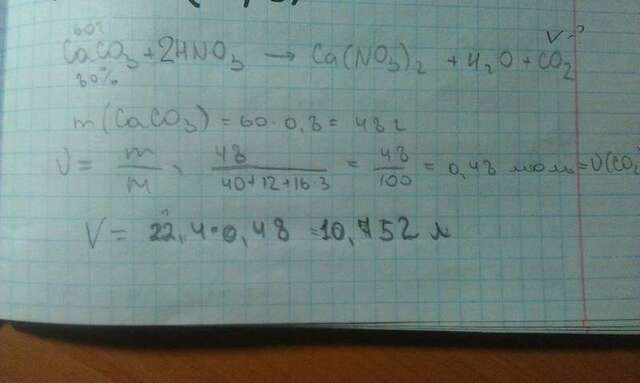 60г V-?
CaCO3 + 2HNO3 → Ca(NO3)2 + H2O + CO2
80%
m(CaCO3) = 60·0,8 = 48 г
υ = m/m, 48/40+12+16·3 = 48/100 = 0,48 моль = υ(CO2
V = 22,4·0,48 = 10,752 л